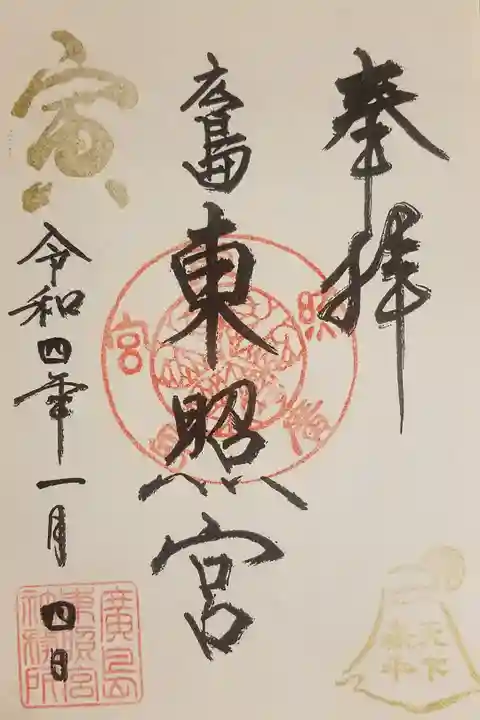 奉拝
廣島
東照宮
寅
令和四年一月四日
廣島
東照宮
社務所
天下
泰平